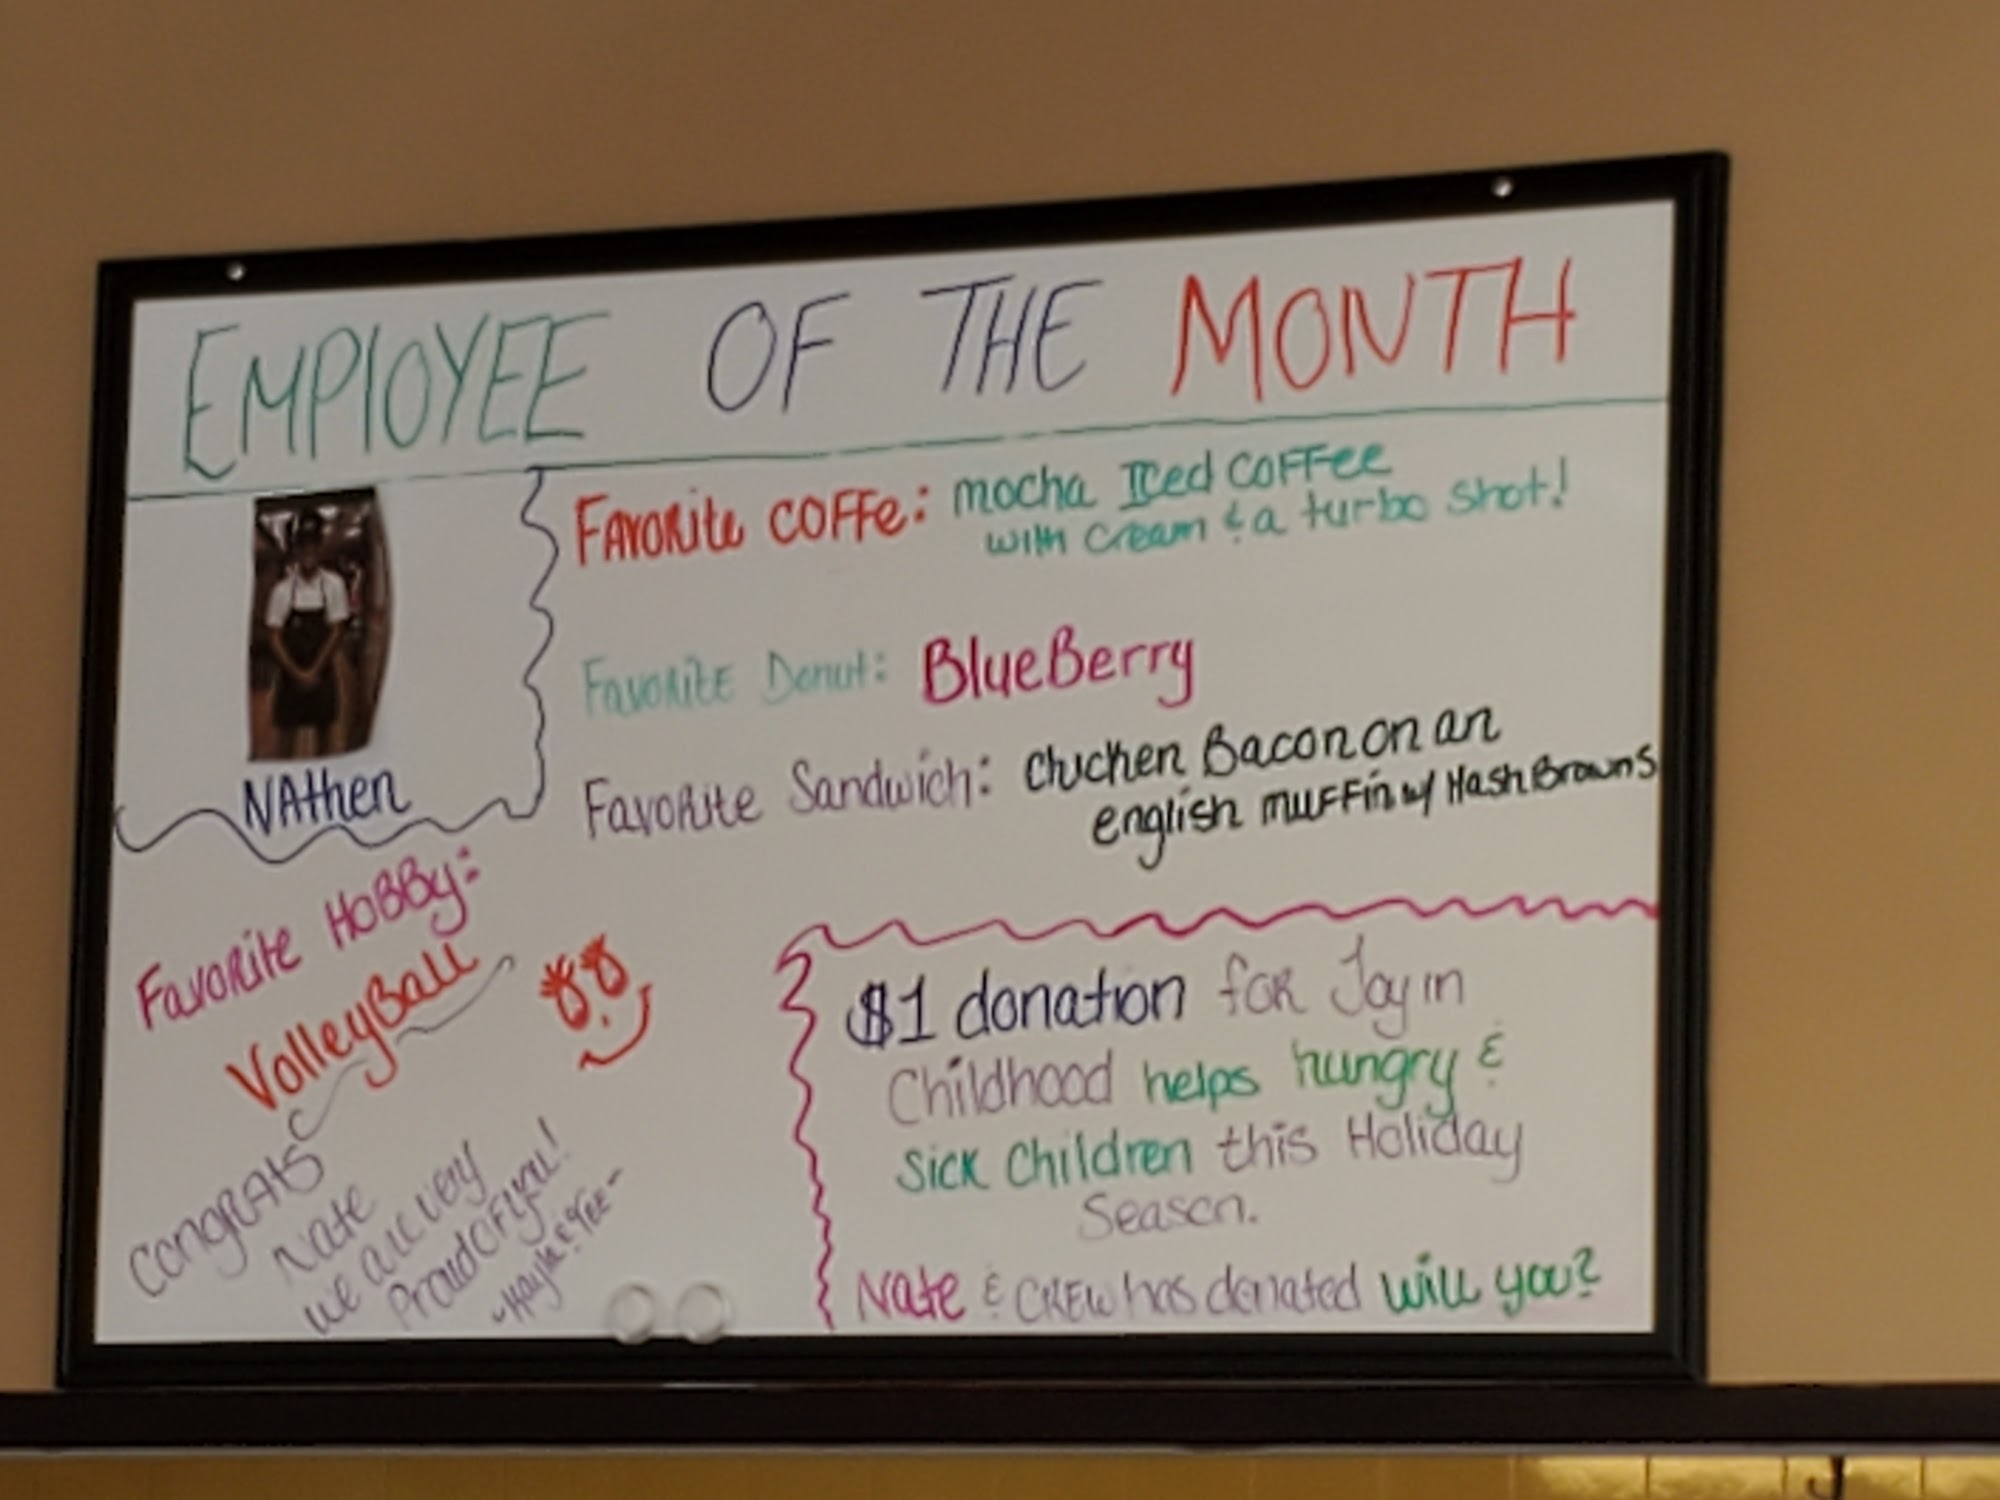 EMPlOYEE OF THE MONTH
NAthen
Favorite COFFe: mocha Iced COFFee
with Cream & a turbo shot!
Favorite Donut: BlueBerry
Favorite Sandwich: chicken Bacon on an
english muffin w/ HashBrowns
Favorite HOBBy:
VolleyBall
CongRATS
Nate
we all very
Proud of you!
$1 donation for Joy in
Childhood helps hungry &
Sick Children this Holiday
Season.
Nate & CREW has donated will you?